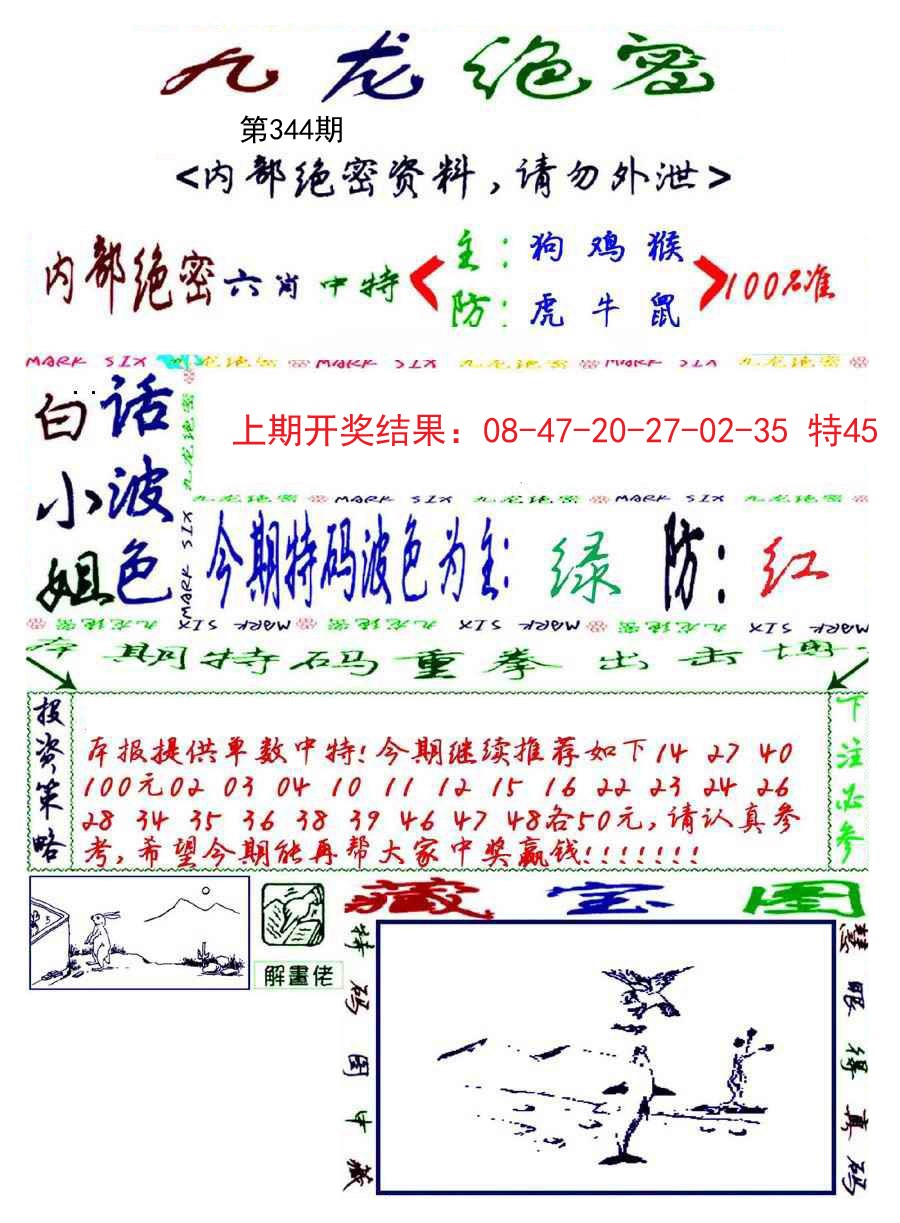 九龙绝密
第344期
<内部绝密资料,请勿外泄>
内部绝密六肖中特
主:狗鸡猴
防:虎牛鼠
100%准
MARK SIX 九龙绝密 MARK SIX 九龙绝密 MARK SIX 九龙绝密
白话
小波
姐色
九龙绝密
MARK SIX
上期开奖结果：08-47-20-27-02-35 特45
九龙绝密 MARK SIX 九龙绝密 MARK SIX
今期特码波色为主:绿 防:红
九龙绝密 MARK SIX 九龙绝密 MARK SIX 九龙绝密 MARK SIX
本期特码重拳出击
投资策略
本报提供单数中特!今期继续推荐如下14 27 40
100元02 03 04 10 11 12 15 16 22 23 24 26
28 34 35 36 38 39 46 47 48各50元,请认真参
考,希望今期能再帮大家中奖赢钱!!!!!!!
下注必参
解畫佬
藏宝图
特码图中藏
慧眼得真码